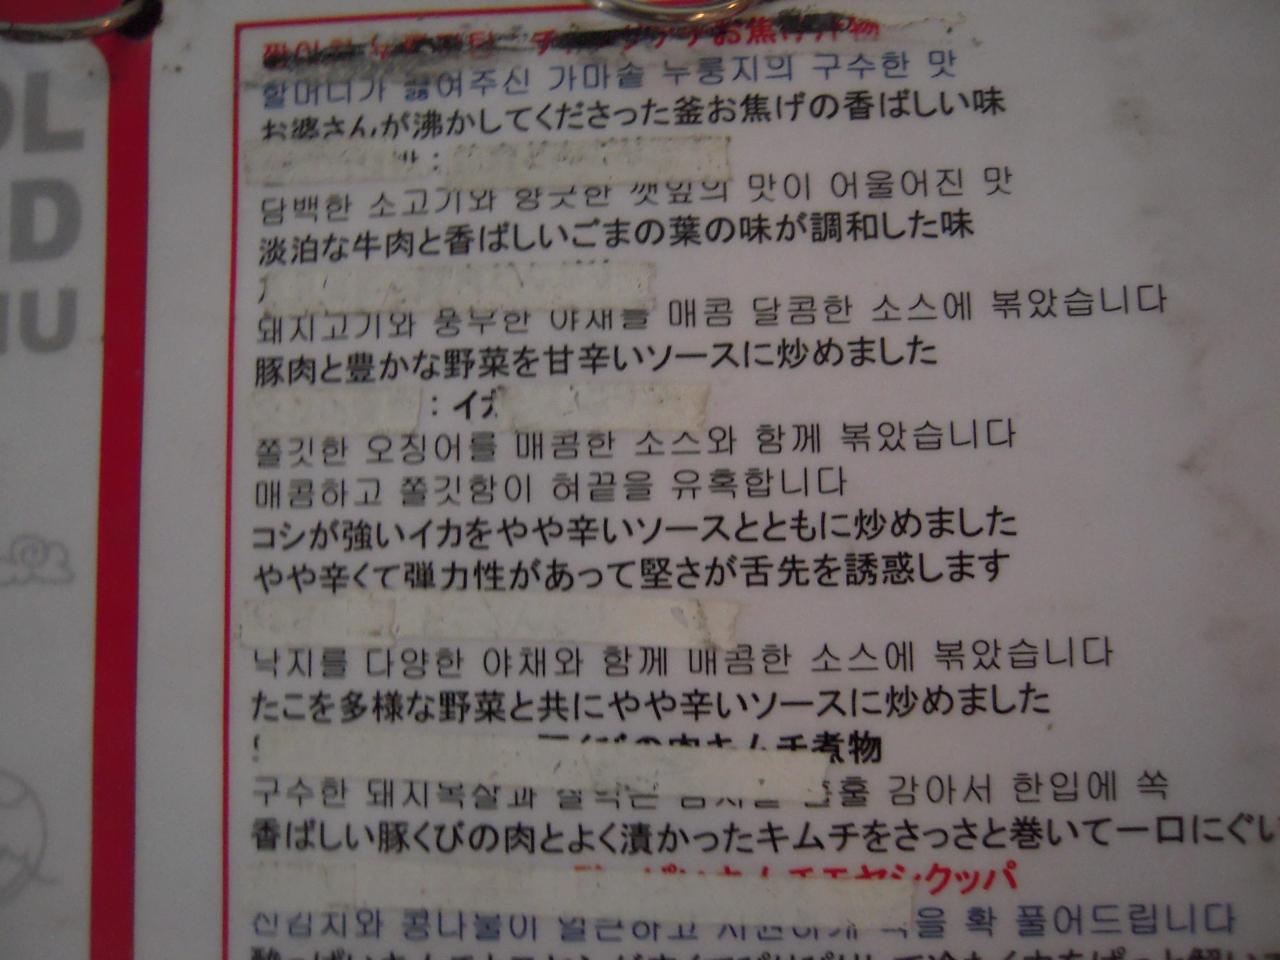 OL
D
NU
お焦げ
할머니가 끓여주신 가마솥 누룽지의 구수한 맛
お婆さんが沸かしてくださった釜お焦げの香ばしい味
담백한 소고기와 향긋한 깻잎의 맛이 어울어진 맛
淡泊な牛肉と香ばしいごまの葉の味が調和した味
돼지고기와 풍부한 야채를 매콤 달콤한 소스에 볶았습니다
豚肉と豊かな野菜を甘辛いソースに炒めました
: イカ
쫄깃한 오징어를 매콤한 소스와 함께 볶았습니다
매콤하고 쫄깃함이 혀끝을 유혹합니다
コシが強いイカをやや辛いソースとともに炒めました
やや辛くて弾力性があって堅さが舌先を誘惑します
낙지를 다양한 야채와 함께 매콤한 소스에 볶았습니다
たこを多様な野菜と共にやや辛いソースに炒めました
くびの肉キムチ煮物
구수한 돼지목살과 감아서 한입에 쏙
香ばしい豚くびの肉とよく漬かったキムチをさっさと巻いて一口にぐい
キムチモヤシクッパ
신김치와 콩나물이 얼큰하고 시원하게 속을 확 풀어드립니다